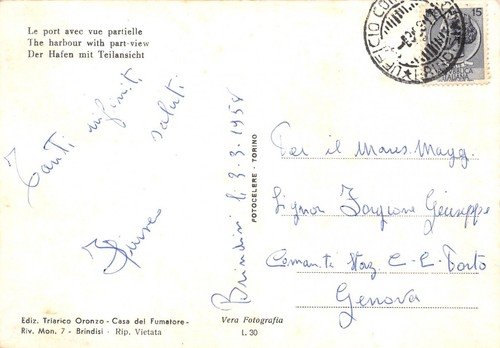 Le port avec vue partielle
The harbour with part-view
Der Hafen mit Teilansicht
UFFICIO
15
Tanti infiniti
saluti
Brindisi li 3-3-1958
FOTOCELERE - TORINO
Per il Mares. Magg.
Signor Forgione Giuseppe
Comanti Staz. C.C. Porto
Genova
Ediz. Triarico Oronzo - Casa del Fumatore -
Riv. Mon. 7 - Brindisi - Rip. Vietata
Vera Fotografia
L. 30